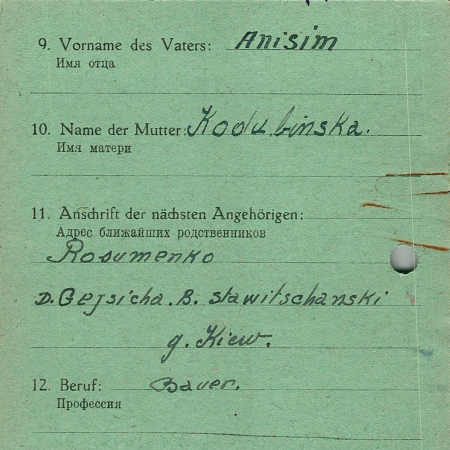 9. Vorname des Vaters: Anisim
Имя отца
10. Name der Mutter: Kodubinska.
Имя матери
11. Anschrift der nächsten Angehörigen:
Адрес ближайших родственников
Rosumenko
D. Gejsicha. B. Stawitschanski
g. Kiew.
12. Beruf: Bauer.
Профессия